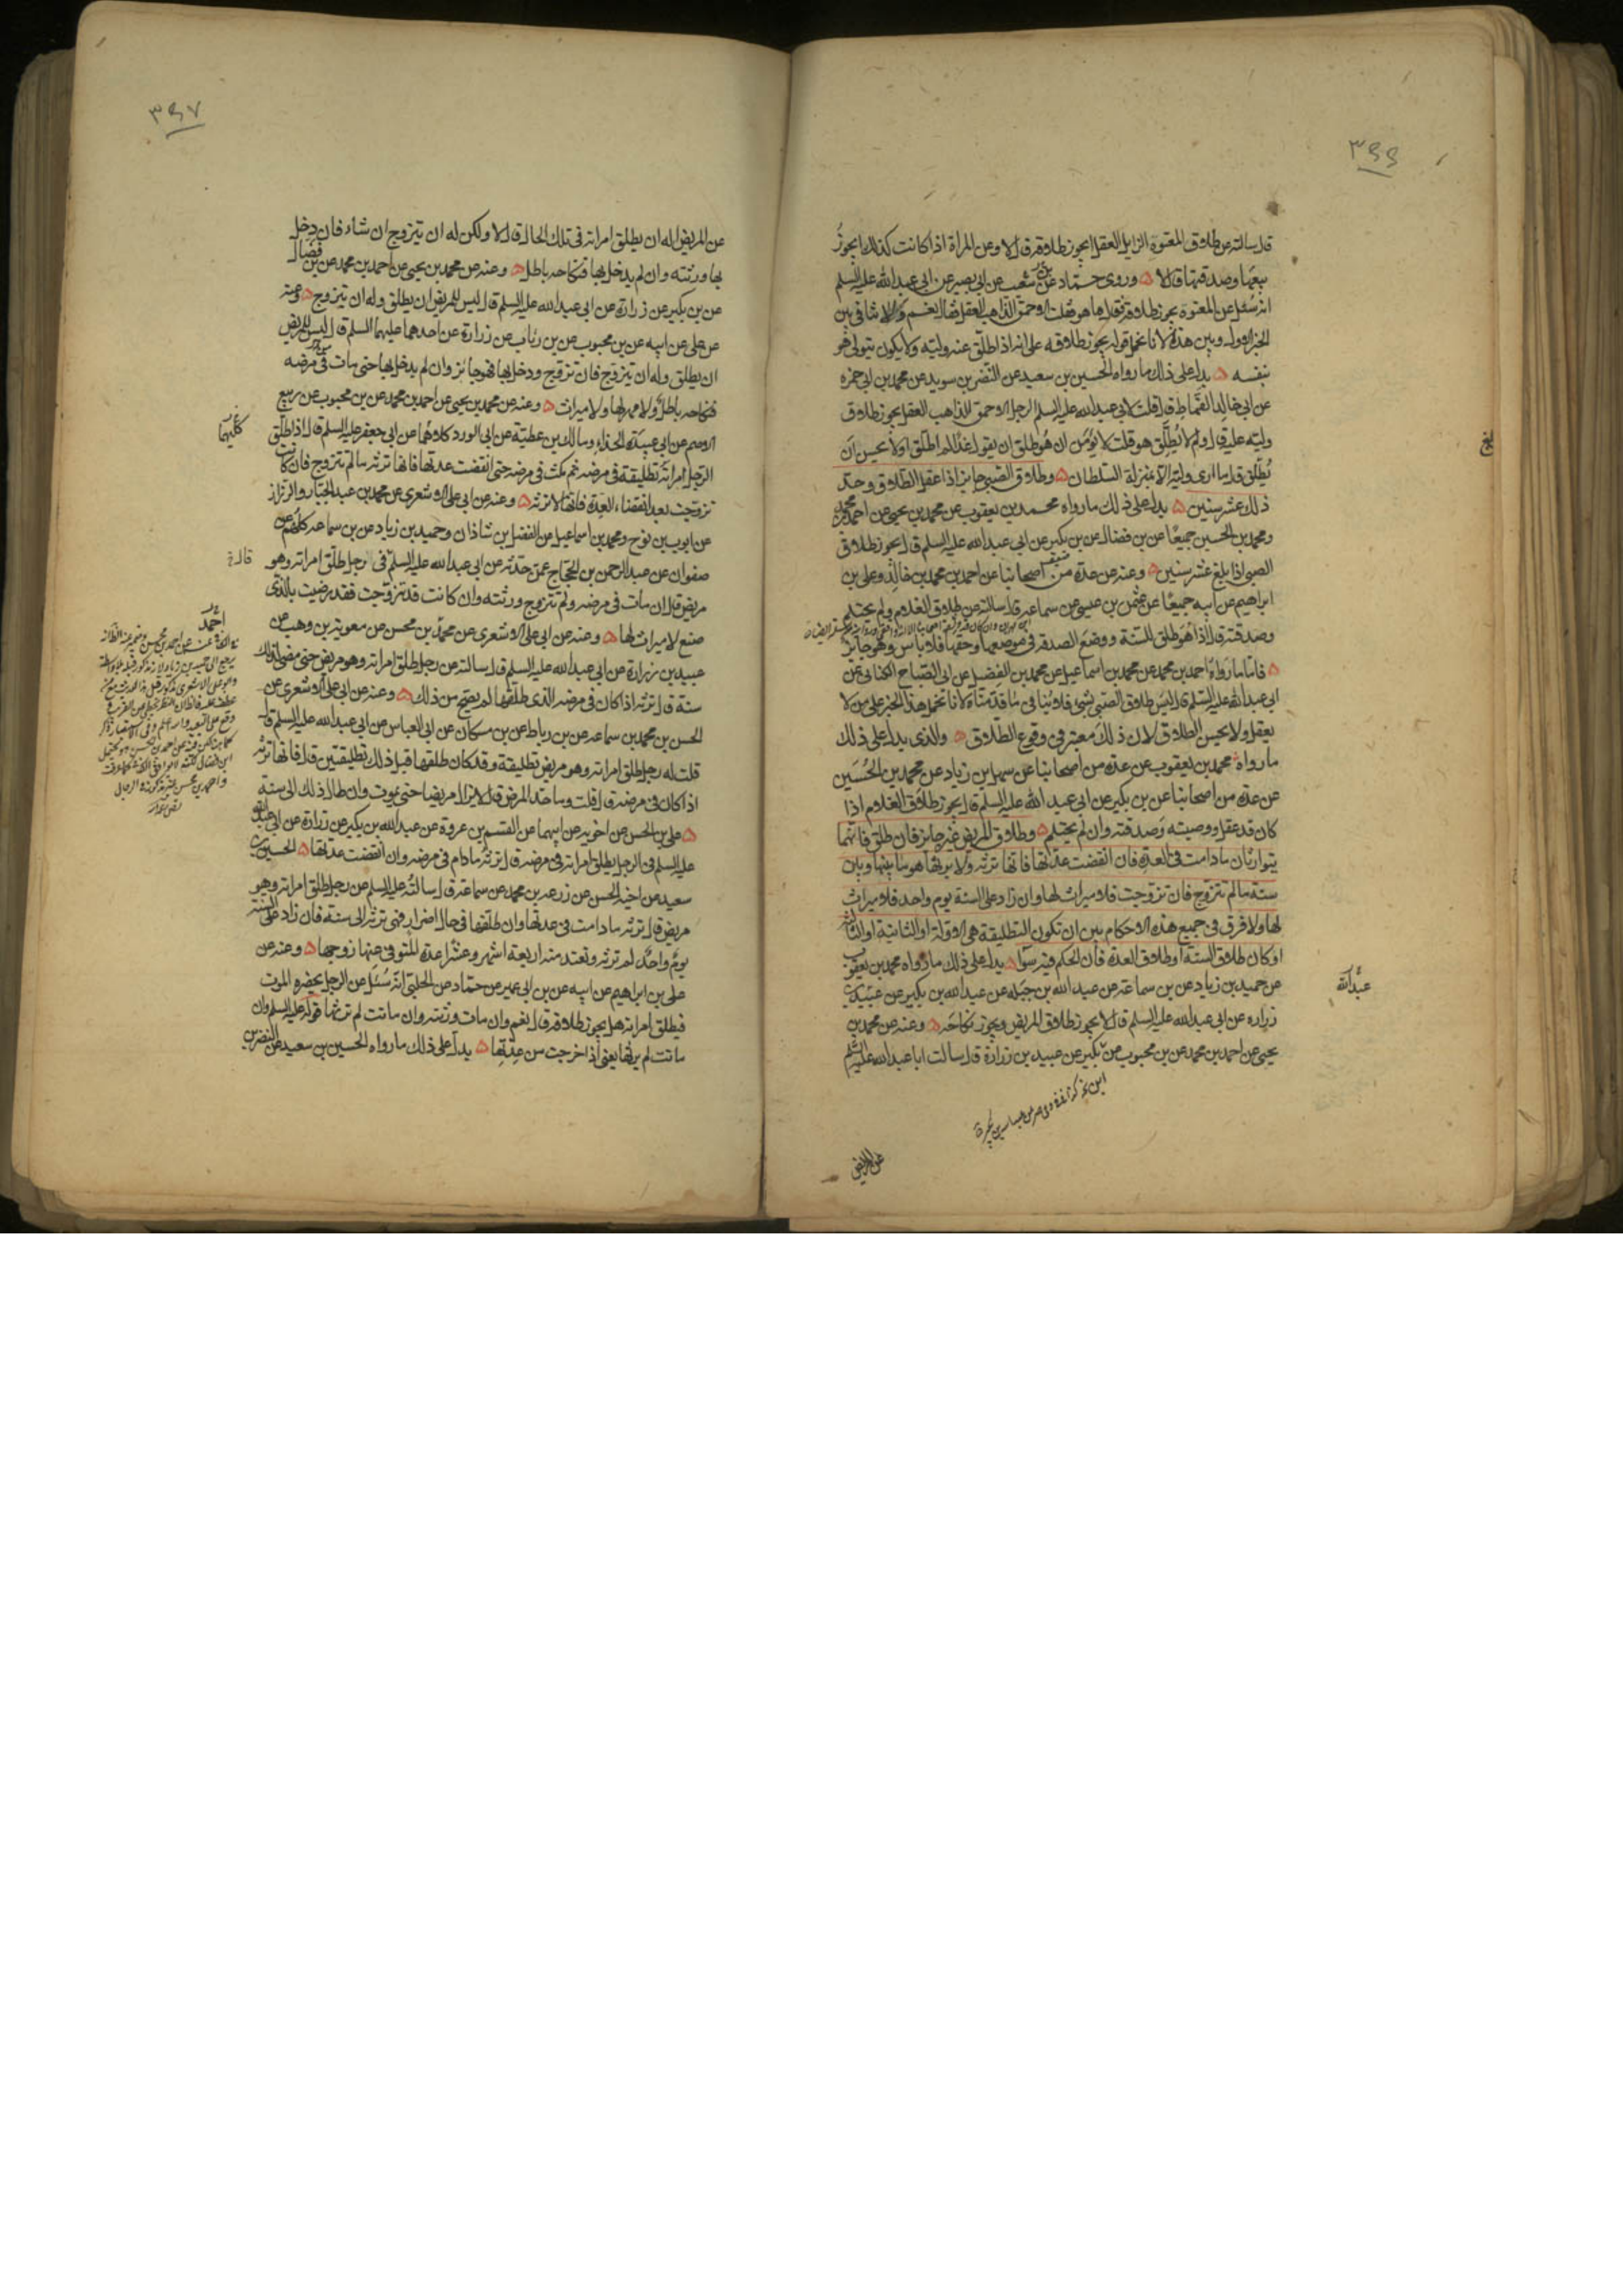 ٣٩٦
قال سالته عن طلاق المعتوه الزايل العقل ايجوز طلاقه قال لا وعن المراة اذا كانت كذلك ايجوز
بيعها وصدقتها قال لا وروى حماد عن شعيب عن ابى بصير عن ابى عبد الله عليه السلم
انه سئل عن المعتوه يجوز طلاقه فقال ما هو فقلت الاحمق الذاهب العقل فقال نعم ولا تنافى بين
الخبر الاول وبين هذه لانا نحمل قوله يجوز طلاقه على انه اذا طلق عنه وليه ولا يكون يتولى هو
بنفسه يدل على ذلك ما رواه الحسين بن سعيد عن النضر بن سويد عن محمد بن ابى حمزه
عن ابى خالد القماط قال قلت لابى عبد الله عليه السلم الرجل الاحمق الذاهب العقل يجوز طلاق
وليه عليه قال ولم لا يطلق هو قلت لا يؤمن ان هو طلق ان يقول غدا لم اطلق او لا يحسن ان
يطلق قال ما ارى وليه الا بمنزلة السلطان وطلاق الصبى جايز اذا عقل الطلاق وحد
ذلك عشر سنين يدل على ذلك ما رواه محمد بن يعقوب عن محمد بن يحيى عن احمد بن محمد
ومحمد بن الحسين جميعا عن بن فضال عن بن بكير عن ابى عبد الله عليه السلم قال يجوز طلاق
الصبى اذا بلغ عشر سنين وعنه عن عدة من اصحابنا عن احمد بن محمد بن خالد وعلى بن
ابراهيم عن ابيه جميعا عن عثمن بن عيسى عن سماعه قال سالته عن طلاق الغلام ولم يحتلم
وصدقته قال اذا هو طلق للسنة ووضع الصدقة فى موضعها وحقها فلا باس وهو جائز
فاما ما رواه احمد بن محمد عن محمد بن اسماعيل عن محمد بن الفضيل عن ابى الصباح الكنانى عن
ابى عبد الله عليه السلم قال ليس طلاق الصبى بشئ فلا ينافى ما قدمناه لانا نحمل هذا الخبر على من لا
يعقل ولا يحسن الطلاق لان ذلك معتبر فى وقوع الطلاق والذى يدل على ذلك
ما رواه محمد بن يعقوب عن عدة من اصحابنا عن سهل بن زياد عن محمد بن الحسين
عن عدة من اصحابنا عن بن بكير عن ابى عبد الله عليه السلم قال يجوز طلاق الغلام اذا
كان قد عقل ووصيته وصدقته وان لم يحتلم وطلاق المريض غير جايز فان طلق فانهما
يتوارثان ما دامت فى العدة فان انقضت عدتها فانها ترثه ولا يرثها هو ما بينها وبين
سنة ما لم تتزوج فان تزوجت فلا ميراث لها وان زاد على السنة يوم واحد فلا ميراث
لها ولا فرق فى جميع هذه الاحكام بين ان تكون التطليقة هى الاولة او الثانية او الثالثه
او كان طلاق السنة او طلاق العدة فان الحكم فيه سواء يدل على ذلك ما رواه محمد بن يعقوب
عن حميد بن زياد عن بن سماعه عن عبد الله بن جبله عن عبد الله بن بكير عن عبيد بن
زراره عن ابى عبد الله عليه السلم قال لا يجوز طلاق المريض ويجوز نكاحه وعنه عن محمد بن
يحيى عن احمد بن محمد عن بن محبوب عن بكير عن عبيد بن زرارة قال سالت ابا عبد الله عليه السلم
عبد الله
عن المريض
٣٩٧
عن المريض اله ان يطلق امراته فى تلك الحال قال لا ولكن له ان يتزوج ان شاء فان دخل
بها ورثته وان لم يدخل بها فنكاحه باطل وعنه عن محمد بن يحيى عن احمد بن محمد عن بن فضال
عن بن بكير عن زرارة عن ابى عبد الله عليه السلم قال ليس للمريض ان يطلق وله ان يتزوج وعنه
عن على عن ابيه عن بن محبوب عن بن رئاب عن زرارة عن احدهما عليهما السلم قال ليس للمريض
ان يطلق وله ان يتزوج فان تزوج ودخل بها فهو جائز وان لم يدخل بها حتى مات فى مرضه
فنكاحه باطل ولا مهر لها ولا ميراث وعنه عن محمد بن يحيى عن احمد بن محمد عن بن محبوب عن ربيع
الاصم عن ابى عبيدة الحذاء ومالك بن عطية عن ابى الورد كلاهما عن ابى جعفر عليه السلم قال اذا طلق
الرجل امراته تطليقة فى مرضه ثم مكث فى مرضه حتى انقضت عدتها فانها ترثه ما لم تتزوج فان كانت
تزوجت بعد انقضاء العدة فانها لا ترثه وعنه عن ابى على الاشعرى عن محمد بن عبد الجبار والرزاز
عن ايوب بن نوح ومحمد بن اسماعيل عن الفضل بن شاذان وحميد بن زياد عن بن سماعه كلهم عن
صفوان عن عبد الرحمن بن الحجاج عمن حدثه عن ابى عبد الله عليه السلم فى رجل طلق امراته وهو
مريض قال ان مات فى مرضه ولم تتزوج ورثته وان كانت قد تزوجت فقد رضيت بالذى
صنع لا ميراث لها وعنه عن ابى على الاشعرى عن محمد بن محسن عن معوية بن وهب عن
عبيد بن زرارة عن ابى عبد الله عليه السلم قال سالته عن رجل طلق امراته وهو مريض حتى مضى لذلك
سنة قال ترثه اذا كان فى مرضه الذى طلقها لم يصح من ذلك وعنه عن ابى على الاشعرى عن
الحسن بن محمد بن سماعه عن بن رباط عن بن مسكان عن ابى العباس عن ابى عبد الله عليه السلم قال
قلت له رجل طلق امراته وهو مريض تطليقة وقد كان طلقها قبل ذلك تطليقتين قال فانها ترثه
اذا كان فى مرضه قال قلت وما حد المرض قال لا يزال مريضا حتى يموت وان طال ذلك الى سنة
على بن الحسن عن اخويه عن ابيهما عن القسم بن عروة عن عبد الله بن بكير عن زرارة عن ابى عبد الله
عليه السلم فى الرجل يطلق امراته فى مرضه قال ترثه ما دام فى مرضه وان انقضت عدتها الحسين بن
سعيد عن اخيه الحسن عن زرعه بن محمد عن سماعة قال سالته عليه السلم عن رجل طلق امراته وهو
مريض قال ترثه ما دامت فى عدتها وان طلقها فى حال اضرار فهى ترثه الى سنة فان زاد على السنة
يوم واحد لم ترثه وتعتد منه اربعة اشهر وعشرا عدة المتوفى عنها زوجها وعنه عن
على بن ابراهيم عن ابيه عن بن ابى عمير عن حماد عن الحلبى انه سئل عن الرجل يحضره الموت
فيطلق امراته هل يجوز طلاقه قال نعم وان مات ورثته وان ماتت لم يرثها قوله عليه السلم وان
ماتت لم يرثها يعنى اذا خرجت من عدتها يدل على ذلك ما رواه الحسين بن سعيد عن النضر بن
كليهما
قال خ
احمد